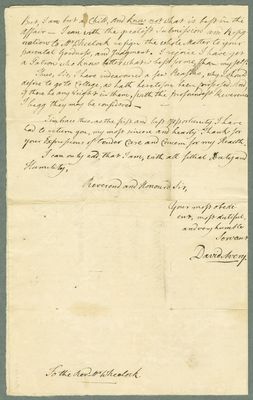 But, I am but a Child, and know not what is best in the
Affair — I can with the greatest Submission and Resig
nation to Mr Wheelock resign the whole Matter to your
parental Goodness, and Judgment. I rejoice I have got
a Patron who knows better what is best for me than myself.
Thus, Sir, I have endeavored a few Reasons, why I should
desire to go to College, as hath heretofore been proposed. And
if there be any Weight in them, with the profoundest Reverence
I begg they may be considered —
I embrace this as the first and best Opportunity, I have
had to return you, my most sincere and hearty Thanks for
your Expressions of tender Care and Concern for my Health.
I can only add that I am, with all filial Duty and
Humility,
Reverend and Honoured Sir,
Your most obedi
ent, most dutiful,
and very humble
Servant
David Avery
To the Revd Mr Wheelock